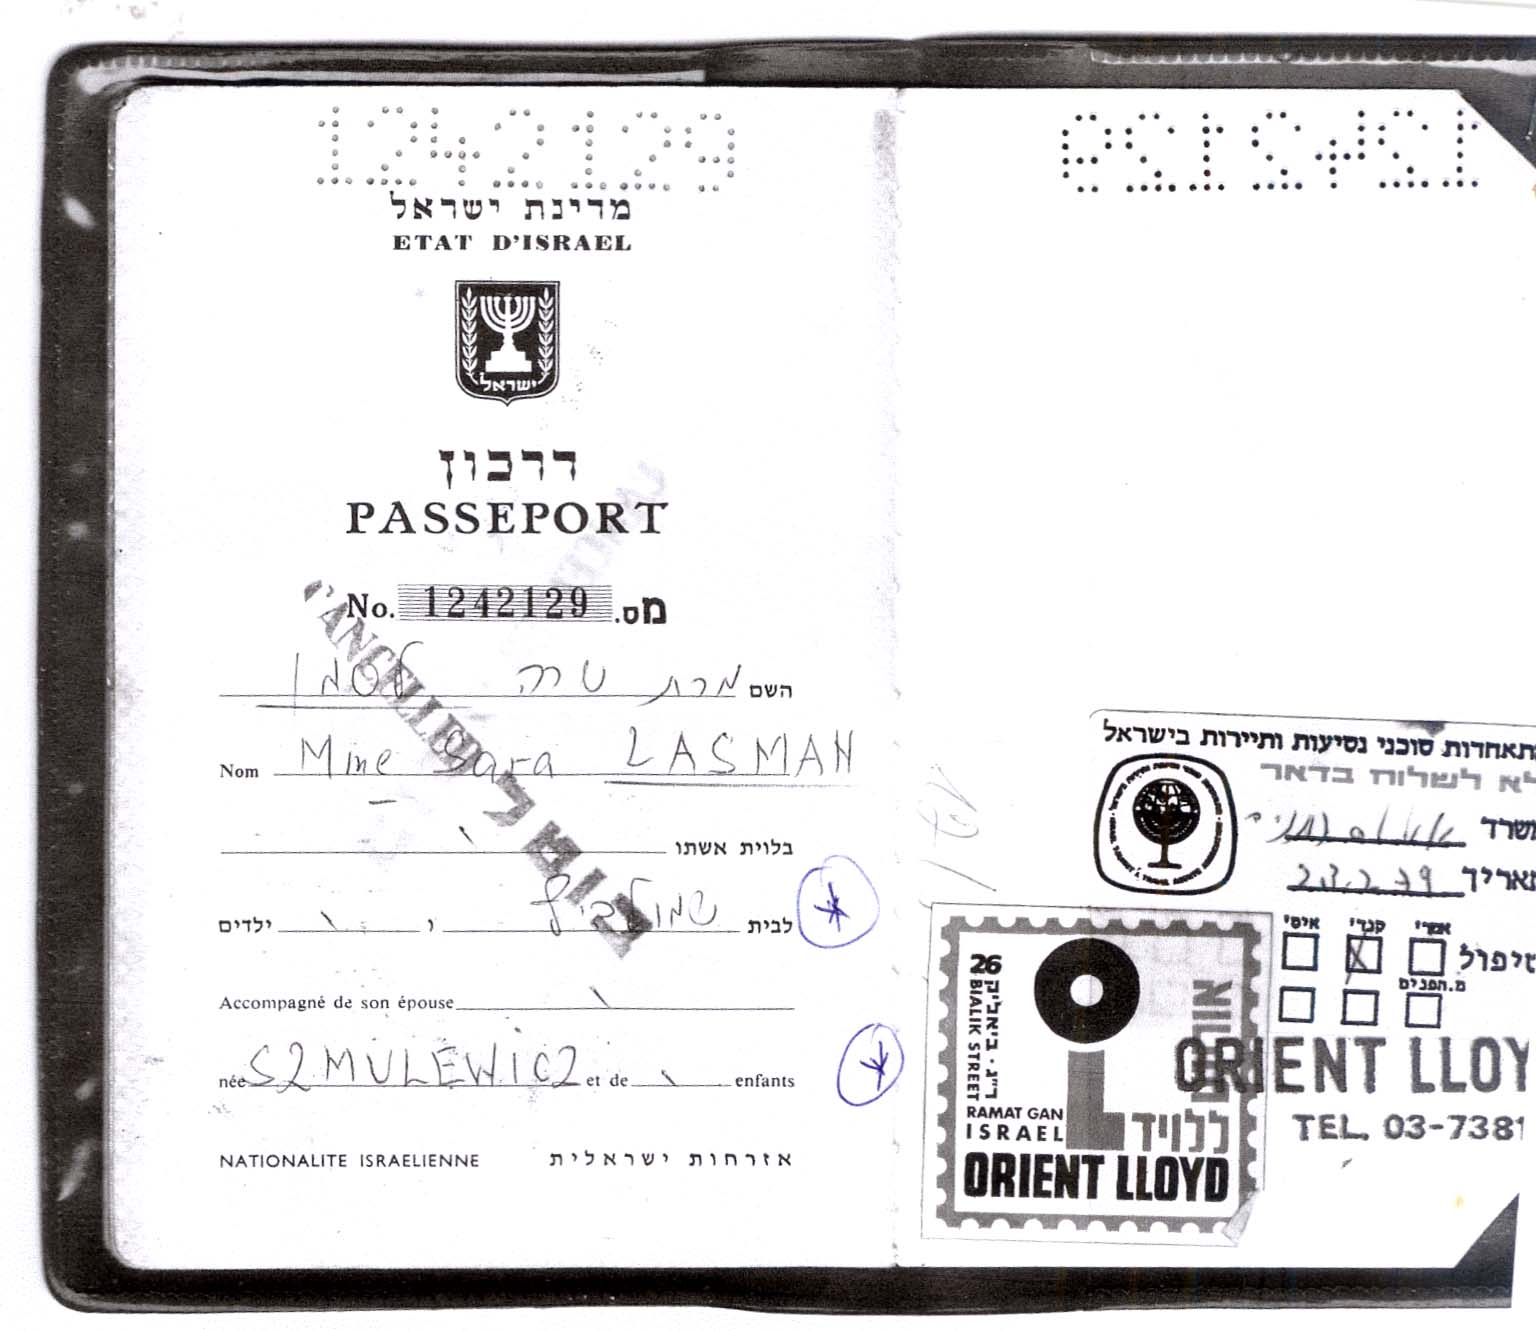 1242129
מדינת ישראל
ETAT D'ISRAEL
ישראל
דרכון
PASSEPORT
No. 1242129 מס.
השם מרת שרה לסמן
Nom Mme Sara LASMAN
CANCELLED
בלוית אשתו
לבית שמולביץ ו ילדים
Accompagné de son épouse
née SZMULEWICZ et de enfants
NATIONALITE ISRAELIENNE אזרחות ישראלית
1242129
התאחדות סוכני נסיעות ותיירות בישראל
לא לשלוח בדאר
משרד
תאריך 23.2.79
טיפול אמרי קנדי איטי
מ.הפנים
26
ביאליק
BIALIK STREET
ר"ג
RAMAT GAN
ISRAEL
ללויד
ORIENT LLOYD
ORIENT LLOY
TEL. 03-7381